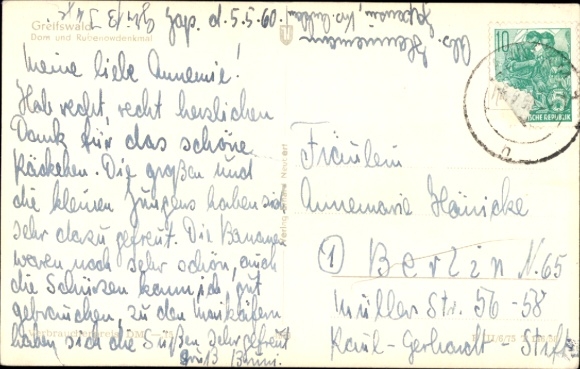 Greifswald
Dom und Rubenowdenkmal
Zap. d. 5.5.60.
Abs. Hannemann
Meine liebe Annemie!
Hab recht, recht herzlichen
Dank für das schöne
Päckchen. Die großen und
die kleinen Jungens haben sich
sehr dazu gefreut. Die Bananen
waren noch sehr schön, auch
die Schürzen kann ich gut
gebrauchen, zu den Maikäfern
haben sich die Süßen sehr gefreut
Gruß
Fräulein
Annemarie Hainicke
1 Berlin N. 65
Müller Str. 56-58
Paul-Gerhardt-Stift
10
5
Verbraucherpreis DM